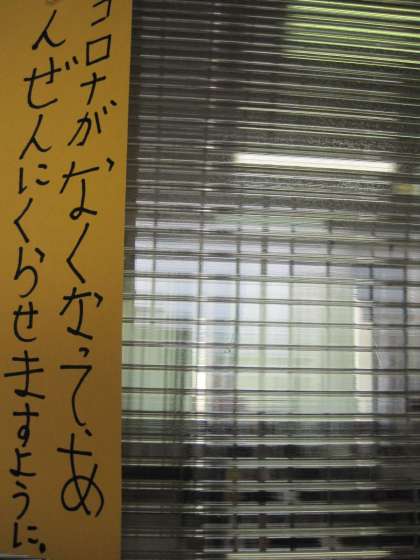 コロナがなくなって、あ
んぜんにくらせますように。